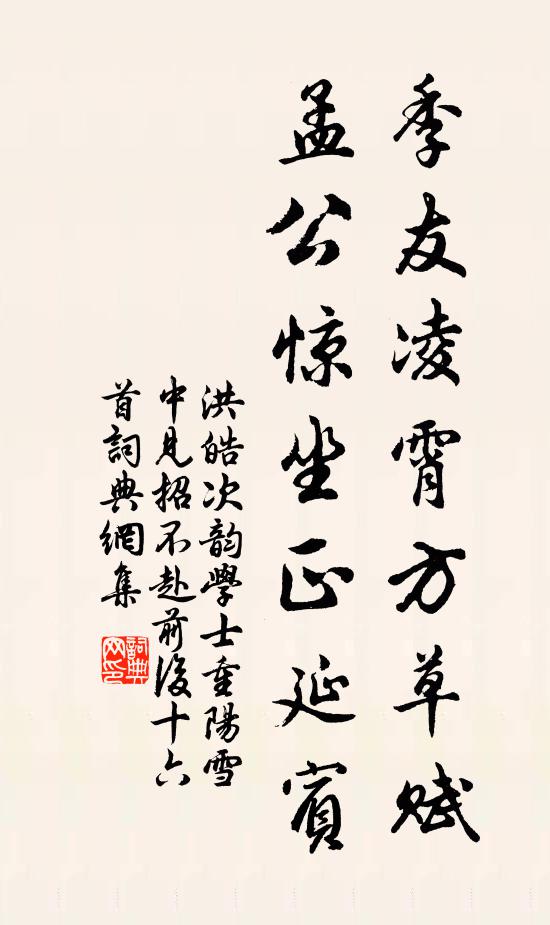 季友凌霄方草赋
孟公惊坐正延賓
洪皓次韵學士重陽雪
中見招不赴前後十六
首詞典網集
詞典
网印